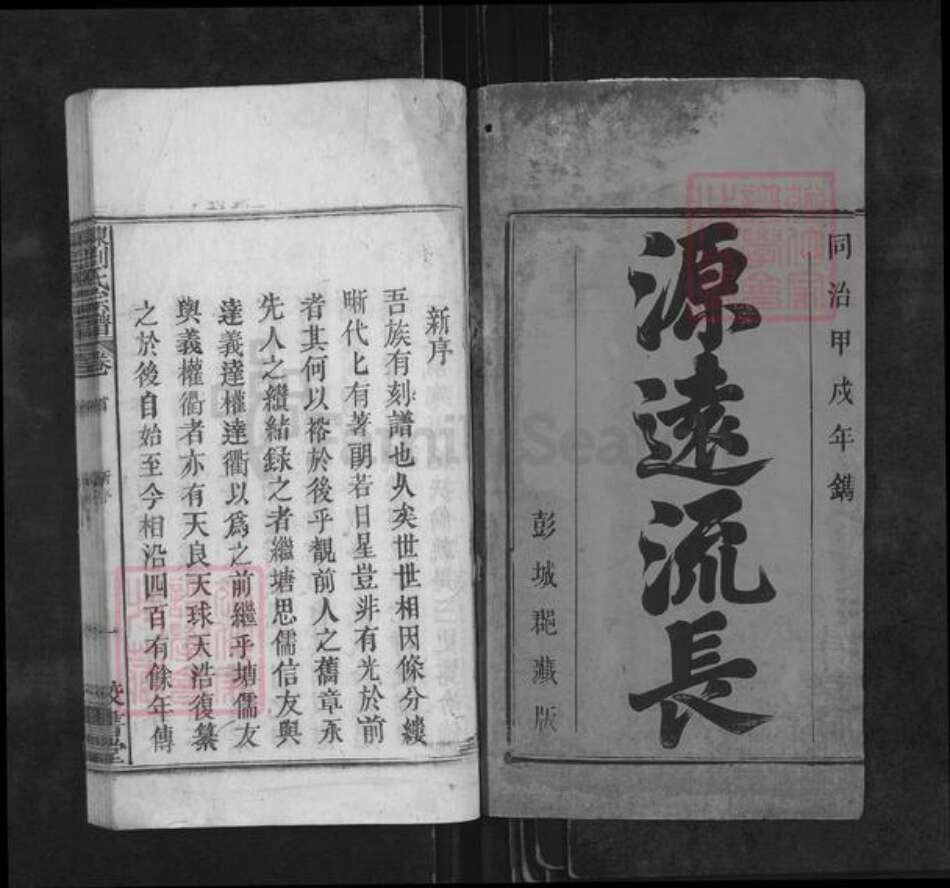 同治甲戌年鐫
源遠流長
彭城郡藏版
新序
吾族有刻譜也久矣世世相因條分縷
晰代匕有著朗若日星豈非有光於前
者其何以裕於後乎觀前人之舊章永
先人之纘緒錄之者繼塘思儒信友與
達義達權達衢以為之前繼乎塘儒友
與義權衢者亦有天良天球天浩復纂
之於後自始至今相沿四百有餘年傳
劉氏宗譜 卷首 新序 一
FamilySearch